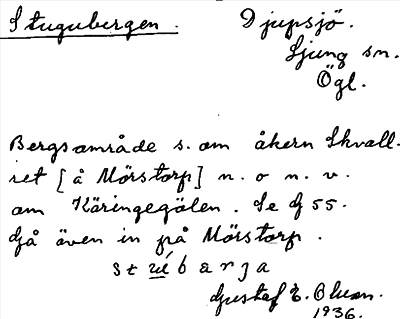 Stugubergen.
Djupsjö.
Ljung sn.
Ögl.
Bergsområde s. om åkern Skvall-
ret [å Mörstorp] n. o n. v.
om Käringegölen. Se G 55.
Gå även in på Mörstorp.
Gustaf E. Olson.
1936.